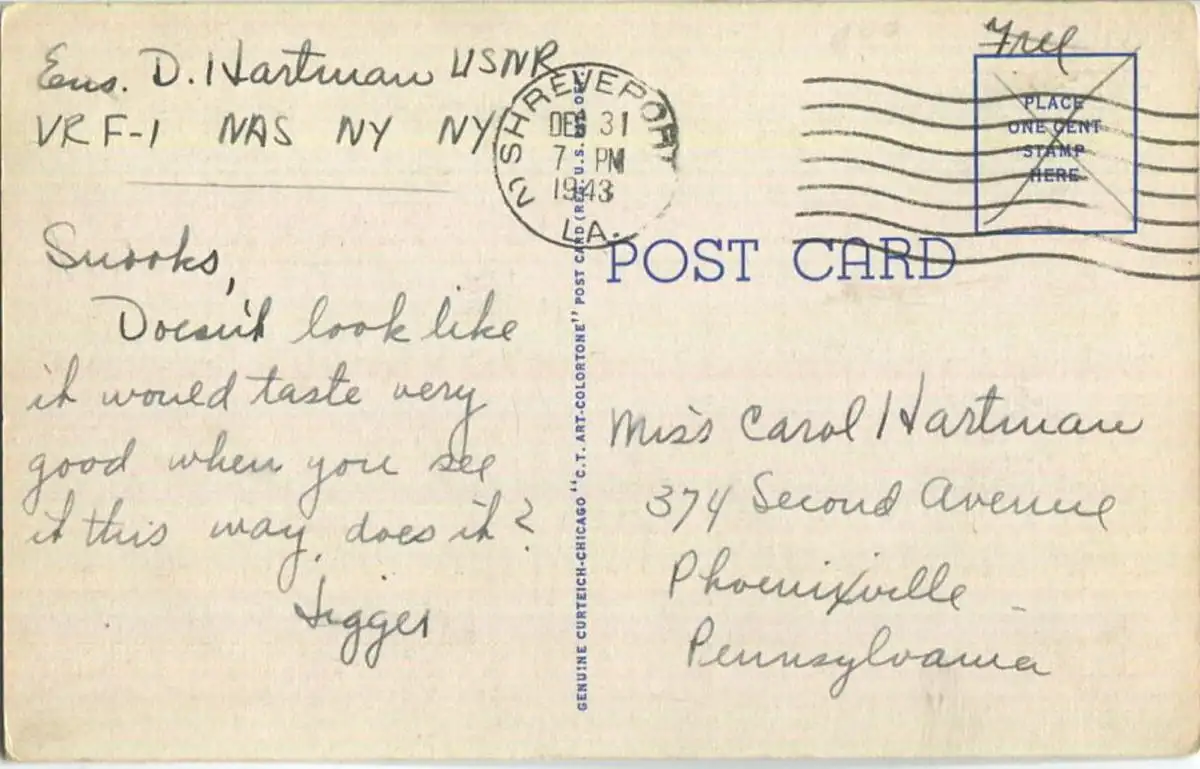 Ens. D. Hartman USNR
VRF-1 NAS NY NY
Snooks,
Doesn't look like
it would taste very
good when you see
it this way, does it?
Jigger
SHREVEPORT
2
DEC 31
7 PM
1943
LA.
GENUINE CURTEICH-CHICAGO "C.T. ART-COLORTONE" POST CARD (REG. U.S. PAT. OFF.)
Free
PLACE
ONE CENT
STAMP
HERE
POST CARD
Miss Carol Hartman
374 Second Avenue
Phoenixville
Pennsylvania